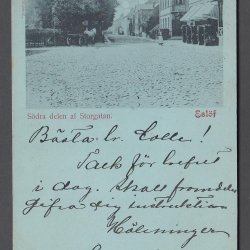 Södra delen af Storgatan.
Eslöf
Bästa br. Colle!
Tack för brefvet
i dag. Skall
dig instruktion
Hälsningar